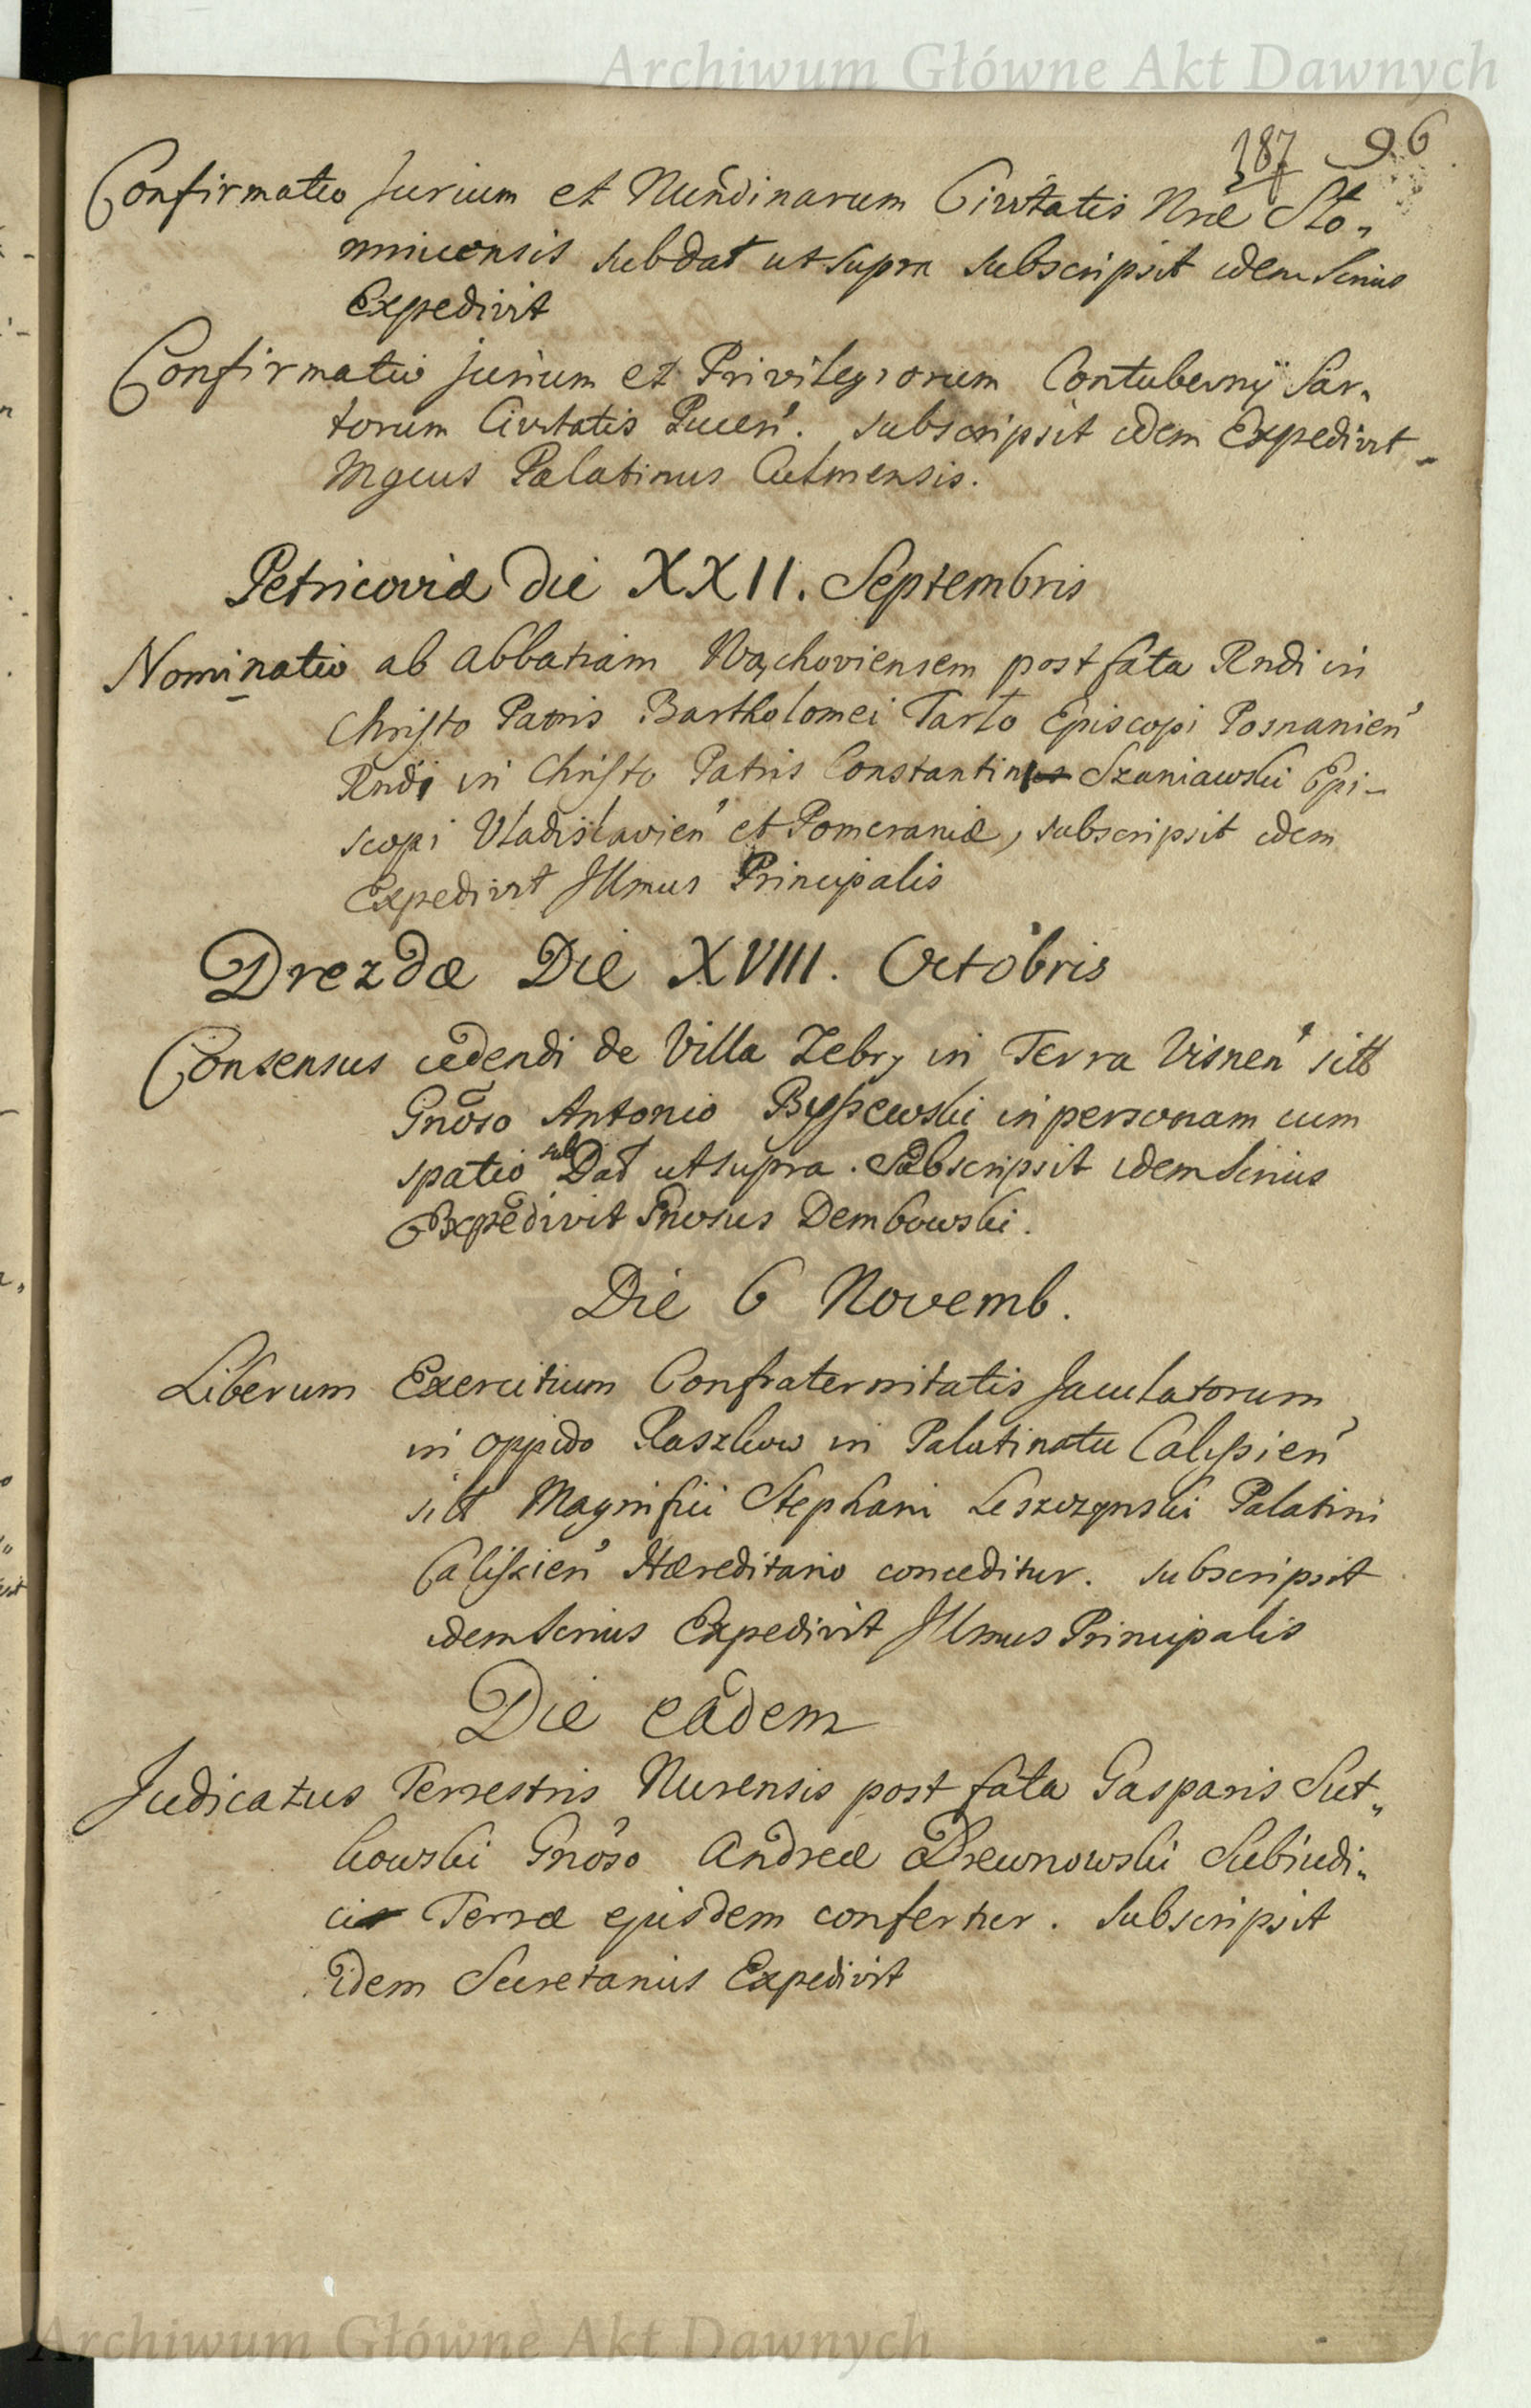 Archiwum Główne Akt Dawnych
187 96
Confirmatio Jurium et Nundinarum Civitatis Nræ Sto„
mnicensis subdat ut supra subscripsit idem Srius
Expedivit
Confirmatio jurium et Privilegiorum Contubernÿ Sar„
torum Civitatis Pucen̄. subscripsit idem Expedivit
Mgcus Palatinus Culmensis.
Petricoviæ die XXII. Septembris
Nominatio ab abbatiam Wąchoviensem post fata Rndi in
Christo Patris Bartholomei Tarło Episcopi Posnanien̄
Rndi in Christo Patris Constantini Szaniawski Epi-
scopi Vladislavien̄ et Pomeraniæ, subscripsit idem
Expedivit Illmus Principalis
Drezdæ Die XVIII. Octobris
Consensus cedendi de Villa Zebry in Terra Visnen̄ sitt
Gnoso Antonio Byszewski in personam cum
spatio sub Dat ut supra. Subscripsit idem Srius
Expedivit Gnosus Dembowski.
Die 6 Novemb.
Liberum Exercitium Confraternitatis Jaculatorum
in oppido Raszkow in Palatinatu Calissien̄
sitt Magnifici Stephani Leszczynski Palatini
Calissien̄ Hæreditario conceditur. subscripsit
idem Srius Expedivit Illmus Principalis
Die eâdem
Judicatus Terrestris Nurensis post fata Gasparis Sut„
kowski Gnoso Andreæ Drewnowski Subiudi„
ci Terræ ejusdem confertur. Subscripsit
idem Secretarius Expedivit
Archiwum Główne Akt Dawnych